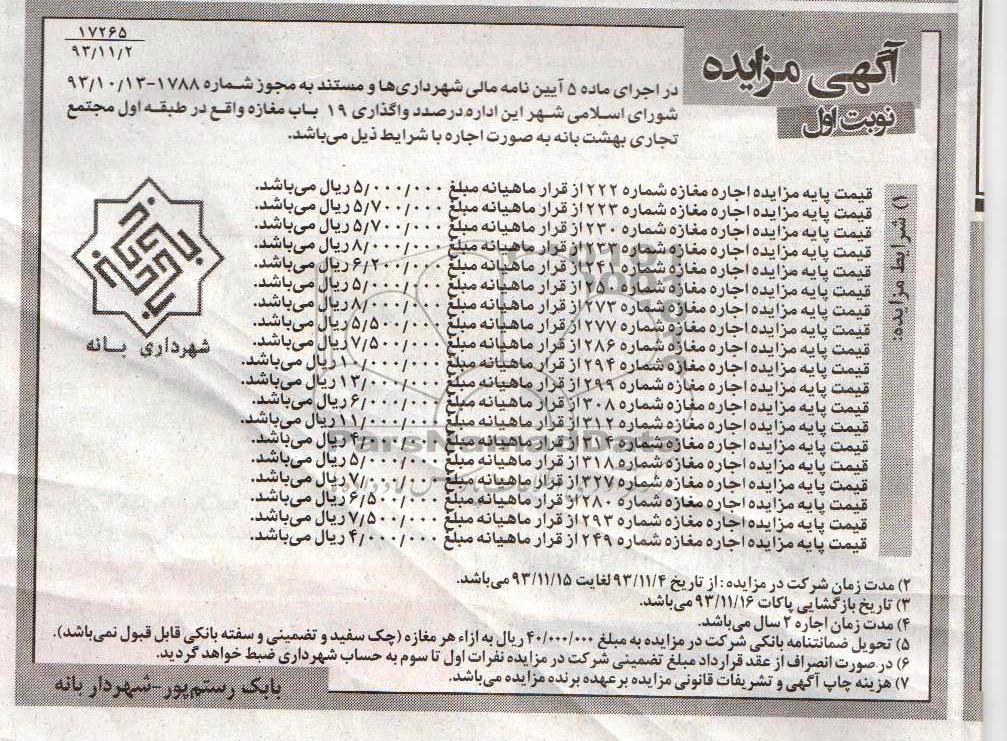 ۱۷۲۶۵
۹۳/۱۱/۲
آگهی مزایده
نوبت اول
در اجرای ماده ۵ آیین نامه مالی شهرداری‌ها و مستند به مجوز شماره ۱۷۸۸-۹۳/۱۰/۱۳
شورای اسلامی شهر این اداره درصدد واگذاری ۱۹ باب مغازه واقع در طبقه اول مجتمع
تجاری بهشت بانه به صورت اجاره با شرایط ذیل می‌باشد.
شهرداری بانه
۱) شرایط مزایده:
قیمت پایه مزایده اجاره مغازه شماره ۲۲۲ از قرار ماهیانه مبلغ ۵/۰۰۰/۰۰۰ ریال می‌باشد.
قیمت پایه مزایده اجاره مغازه شماره ۲۲۳ از قرار ماهیانه مبلغ ۵/۷۰۰/۰۰۰ ریال می‌باشد.
قیمت پایه مزایده اجاره مغازه شماره ۲۳۰ از قرار ماهیانه مبلغ ۵/۷۰۰/۰۰۰ ریال می‌باشد.
قیمت پایه مزایده اجاره مغازه شماره ۲۳۳ از قرار ماهیانه مبلغ ۸/۰۰۰/۰۰۰ ریال می‌باشد.
قیمت پایه مزایده اجاره مغازه شماره ۲۴۱ از قرار ماهیانه مبلغ ۶/۲۰۰/۰۰۰ ریال می‌باشد.
قیمت پایه مزایده اجاره مغازه شماره ۲۵۱ از قرار ماهیانه مبلغ ۵/۰۰۰/۰۰۰ ریال می‌باشد.
قیمت پایه مزایده اجاره مغازه شماره ۲۷۳ از قرار ماهیانه مبلغ ۸/۰۰۰/۰۰۰ ریال می‌باشد.
قیمت پایه مزایده اجاره مغازه شماره ۲۷۷ از قرار ماهیانه مبلغ ۵/۵۰۰/۰۰۰ ریال می‌باشد.
قیمت پایه مزایده اجاره مغازه شماره ۲۸۶ از قرار ماهیانه مبلغ ۷/۵۰۰/۰۰۰ ریال می‌باشد.
قیمت پایه مزایده اجاره مغازه شماره ۲۹۴ از قرار ماهیانه مبلغ ۱۰/۰۰۰/۰۰۰ ریال می‌باشد.
قیمت پایه مزایده اجاره مغازه شماره ۲۹۹ از قرار ماهیانه مبلغ ۱۳/۰۰۰/۰۰۰ ریال می‌باشد.
قیمت پایه مزایده اجاره مغازه شماره ۳۰۸ از قرار ماهیانه مبلغ ۶/۰۰۰/۰۰۰ ریال می‌باشد.
قیمت پایه مزایده اجاره مغازه شماره ۳۱۲ از قرار ماهیانه مبلغ ۱۱/۰۰۰/۰۰۰ ریال می‌باشد.
قیمت پایه مزایده اجاره مغازه شماره از قرار ماهیانه مبلغ ریال می‌باشد.
قیمت پایه مزایده اجاره مغازه شماره ۳۱۸ از قرار ماهیانه مبلغ ۵/۰۰۰/۰۰۰ ریال می‌باشد.
قیمت پایه مزایده اجاره مغازه شماره ۳۲۷ از قرار ماهیانه مبلغ ۷/۰۰۰/۰۰۰ ریال می‌باشد.
قیمت پایه مزایده اجاره مغازه شماره ۲۸۰ از قرار ماهیانه مبلغ ۶/۵۰۰/۰۰۰ ریال می‌باشد.
قیمت پایه مزایده اجاره مغازه شماره ۲۹۳ از قرار ماهیانه مبلغ ۷/۵۰۰/۰۰۰ ریال می‌باشد.
قیمت پایه مزایده اجاره مغازه شماره ۲۴۹ از قرار ماهیانه مبلغ ۴/۰۰۰/۰۰۰ ریال می‌باشد.
ParsNamadData
۲) مدت زمان شرکت در مزایده: از تاریخ ۹۳/۱۱/۴ لغایت ۹۳/۱۱/۱۵ می‌باشد.
۳) تاریخ بازگشایی پاکات ۹۳/۱۱/۱۶ می‌باشد.
۴) مدت زمان اجاره ۲ سال می‌باشد.
۵) تحویل ضمانتنامه بانکی شرکت در مزایده به مبلغ ۴۰/۰۰۰/۰۰۰ ریال به ازاء هر مغازه (چک سفید و تضمینی و سفته بانکی قابل قبول نمی‌باشد).
۶) در صورت انصراف از عقد قرارداد مبلغ تضمینی شرکت در مزایده نفرات اول تا سوم به حساب شهرداری ضبط خواهد گردید.
۷) هزینه چاپ آگهی و تشریفات قانونی مزایده بر عهده برنده مزایده می‌باشد.
بابک رستم‌پور-شهردار بانه